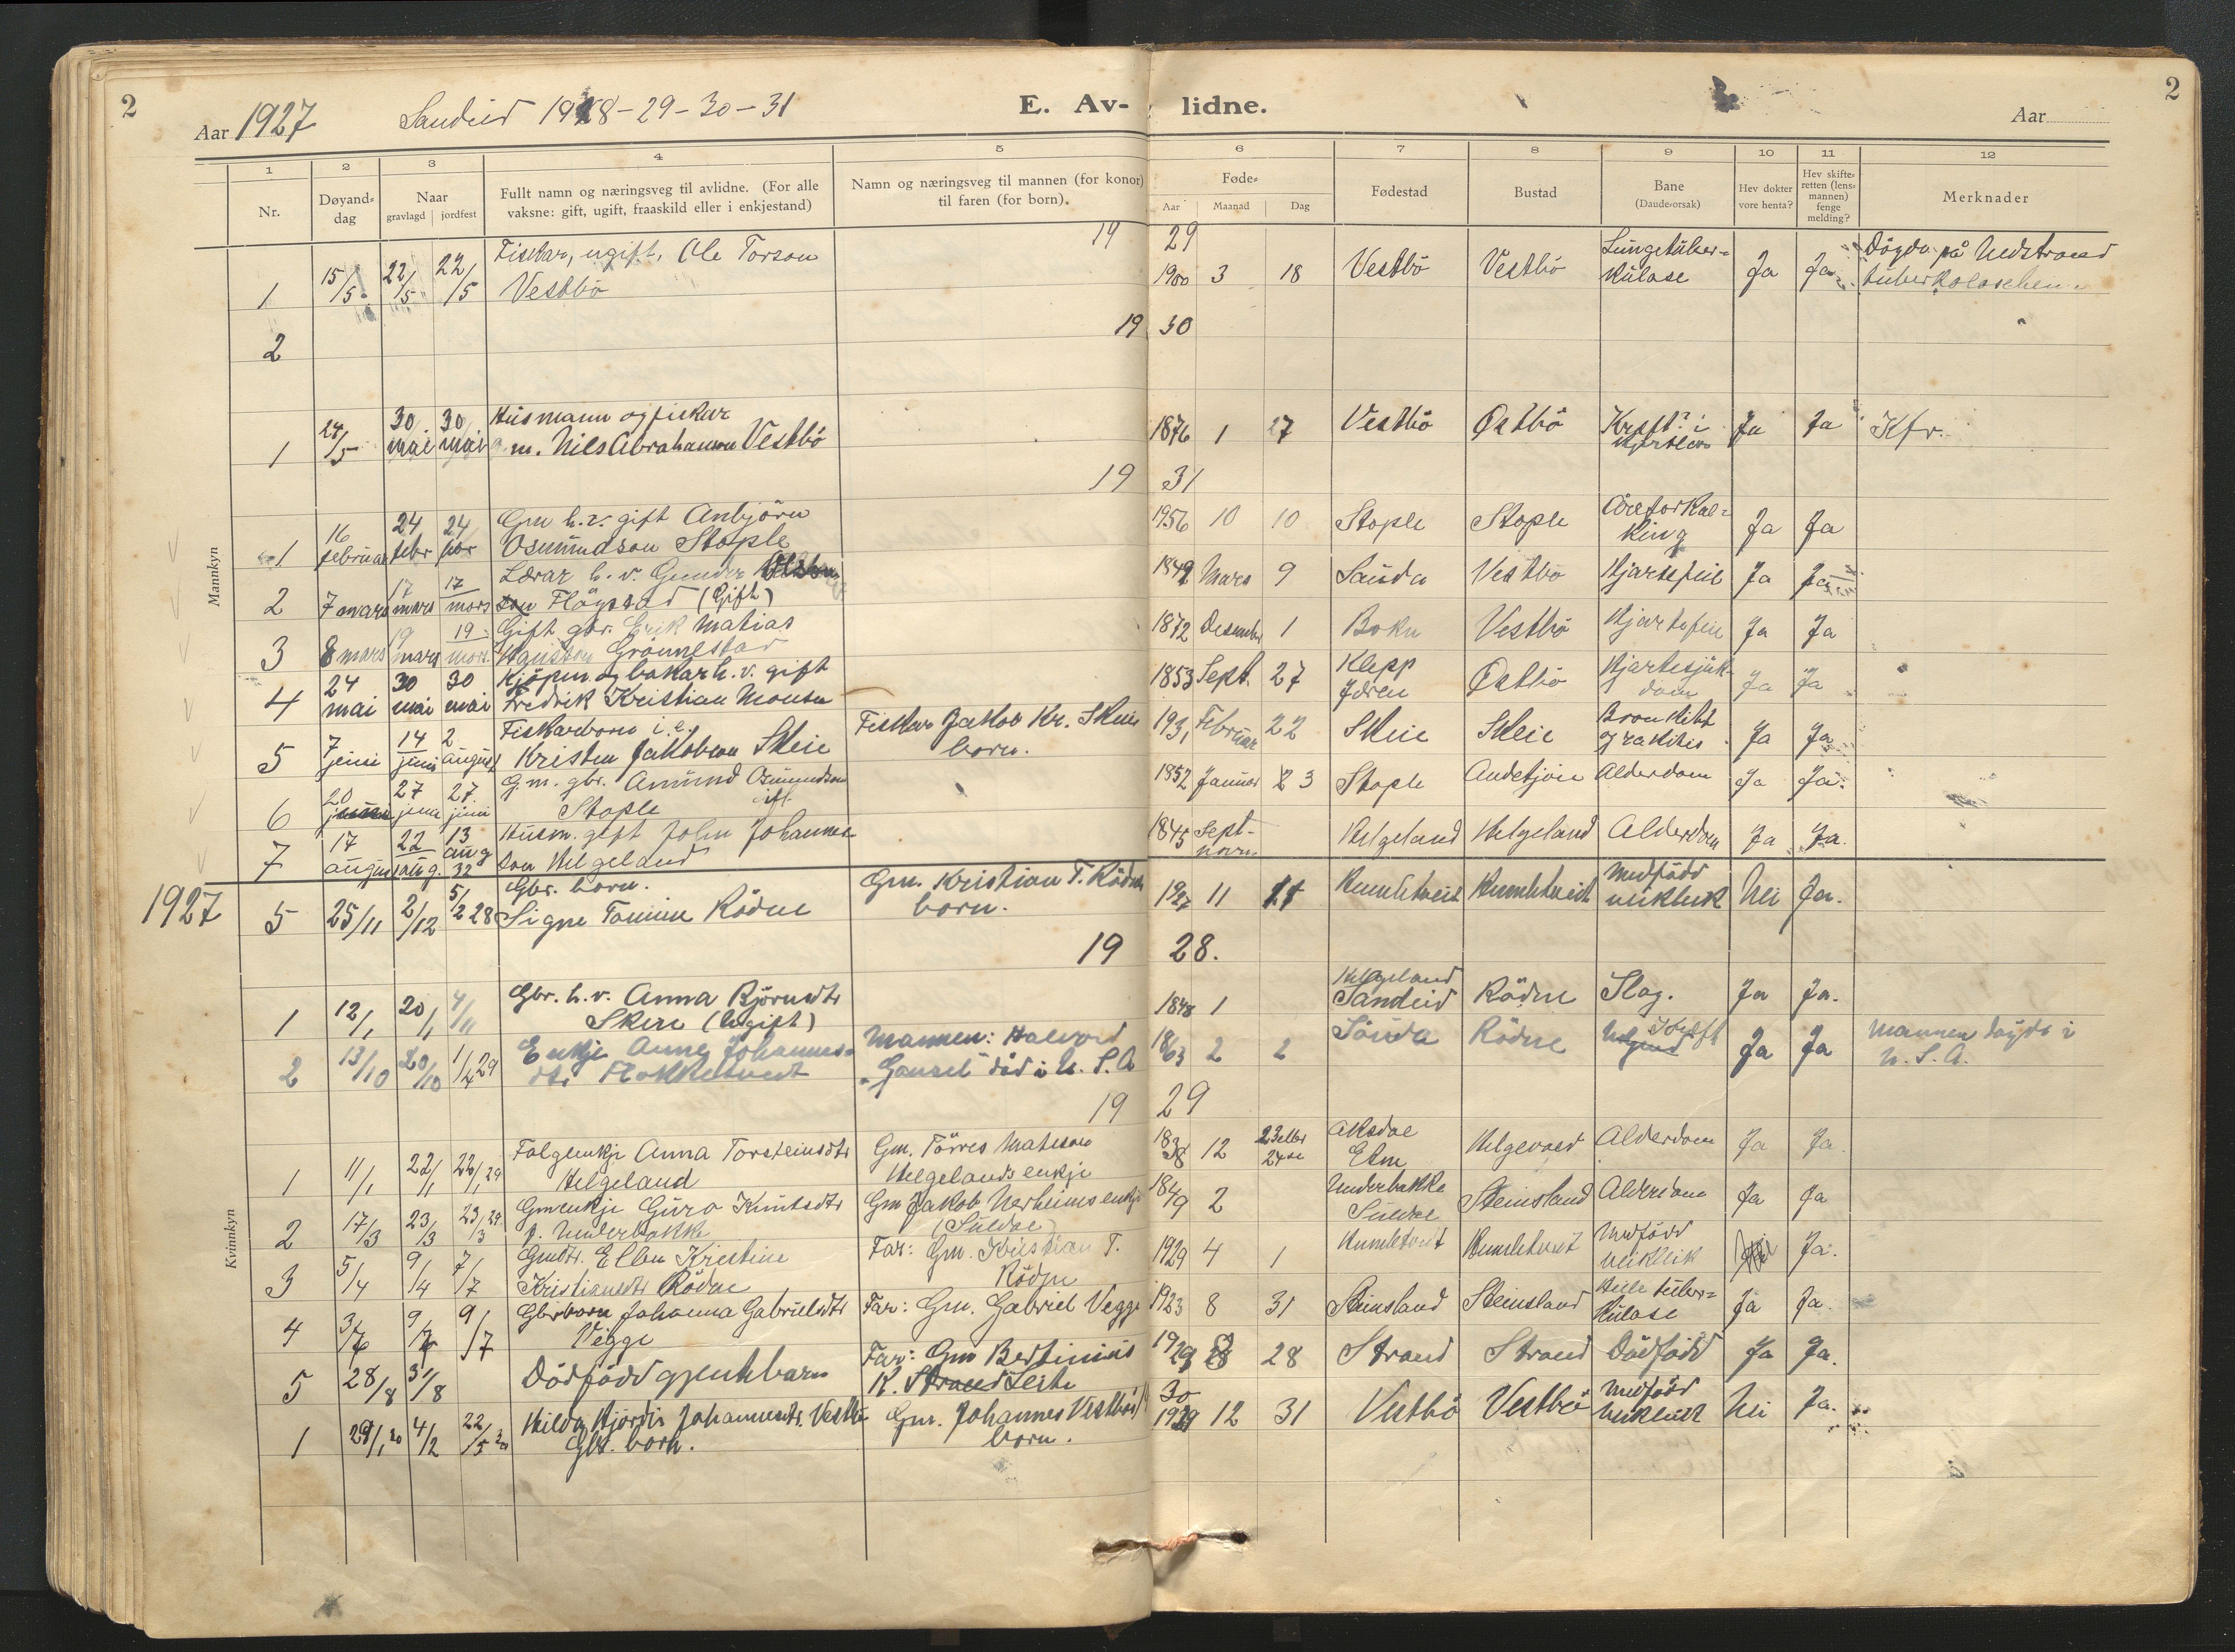 2
Aar 1927
Sandeid 1928-29-30-31
E. Av-lidne.
Aar
2
1 2 3 4 5 6 7 8 9 10 11 12
Nr.
Døyand-dag
Naar
gravlagd | jordfest
Fullt namn og næringsveg til avlidne. (For alle
vaksne: gift, ugift, fraaskild eller i enkjestand)
Namn og næringsveg til mannen (for konor)
til faren (for born).
Føde-
Aar Maanad Dag
Fødestad
Bustad
Bane
(Daude-orsak)
Hev dokter
vore henta?
Hev skifte-
retten (lens-
mannen)
fenge
melding?
Merknader
Mannkyn
19 29
1 15/5 22/5 22/5 Fiskar, ugift, Ole Torson
Vestbö
1900 3 18 Vestbö Vestbö Lungetuber-
kulose Ja Ja Döyde på Nedstrand
tuberkoloseheim
2
19 30
1 24/5 30 mai 30 mai Husmann og fiskar
g. m. Nils Abrahamson Vestbö
1876 1 27 Vestbö Östbö Kreft? i
Ja Ja Kfr.
19 31
1 16 februar 24 febr 24 febr Gm h.v. gift Anbjörn
Osmundson Stople
10 10 Stople Stople Åreforkal-
king Ja Ja
2 7 mars 17 mars 17 mars Lærar h. v. Gunder
son Flögstad (Gift)
1849 Mars 9 Sauda Vestbö Hjartefeil Ja Ja
3 8 mars 19 mars 19 mars Gift gbr. Erik Matias
Grönnestad
1872 Desember 1 Bokn Vestbö Hjartefeil Ja Ja
4 24 mai 30 mai 30 mai Kjöpm. og bakar h. v. gift
Fredrik Kristian Monsen
1853 Sept. 27 Klepp
Jæren Östbö Hjartesjuk-
dom Ja Ja
5 7 juni 14 juni 2 august Fiskarborn i e.
Kristen Jakobson Skeie
Fiskar Jakob Kr. Skeie
born.
1931 Februar 22 Skeie Skeie Bronkitt
og rakitis Ja Ja
6 20 juni 27 juni 27 juni G.m. gbr. Amund Osmundson
Stople gift
1852 Januar 23 Stople Alderdom Ja Ja.
7 17 august 22 aug. 13 aug 32 Husm. gift John Johannes-
son Helgeland
1845 Sept-
novm. Helgeland Helgeland Alderdom Ja Ja.
Kvinnkyn
1927
5 25/11 2/12 5/2 28 Gbr. born.
Signe Tomine Rödne
Gm. Kristian T. Rödne
born.
1927 11 11 Humletveit Humletveit Medfödd
veikleik Nei Ja.
19 28.
1 12/1 20/1 4/11 Gbr. h.v. Anna Björnsdtr
Skeie (Ugift)
1848 1 Helgeland
Sandeid Rödne Slag. Ja Ja.
2 13/10 20/10 1/4 29 Enkje Anne Johannes-
dtr Flokketveit
Mannen: Halvord
"Gausel" död i U. S. A
1863 2 2 Sauda Rödne Kreft Ja Ja Mannen döyde i
U. S. A.
19 29
1 11/1 22/1 22/1 29 Folgeenkje Anna Torsteinsdtr
Helgeland
Gm. Törres Matsson
Helgelands enkje
1838 12 23 eller
24de Aksdal
Elm Helgevold Alderdom Ja Ja
2 17/3 23/3 23/3 29 Gmenkje Guro Knutsdtr
f. Underbakke
Gm Jakob Nerheims enkje
(Suldal)
1849 2 Underbakke
Suldal Steinsland Alderdom Ja Ja
3 5/4 9/4 7/7 Gmdtr. Ellen Kristine
Kristiansdtr Rödne
Far: Gm. Kristian T.
Rödne
1929 4 1 Humletveit Humletveit Medfödd
veikleik Ja.
4 3/6 9/6 9/7 Gbrborn Johanna Gabrielsdtr
Vegge
Far: Gm. Gabriel Vegge
1923 8 31 Steinsland Steinsland tuber-
kulose Ja Ja.
5 28/8 31/8 Dödfödd gjentebarn
Far: Gm Bertinius
K. Strand Leite
1929 8 28 Strand Strand Dödfödd Ja Ja.
30
1 29/1 30 4/2 22/5 30 Hilda Hjördis Johannesdtr. Vestbö
Gbr. born.
Gm. Johannes Vestbös
born.
1929 12 31 Vestbö Vestbö Medfödd
veikleik Nei Ja.